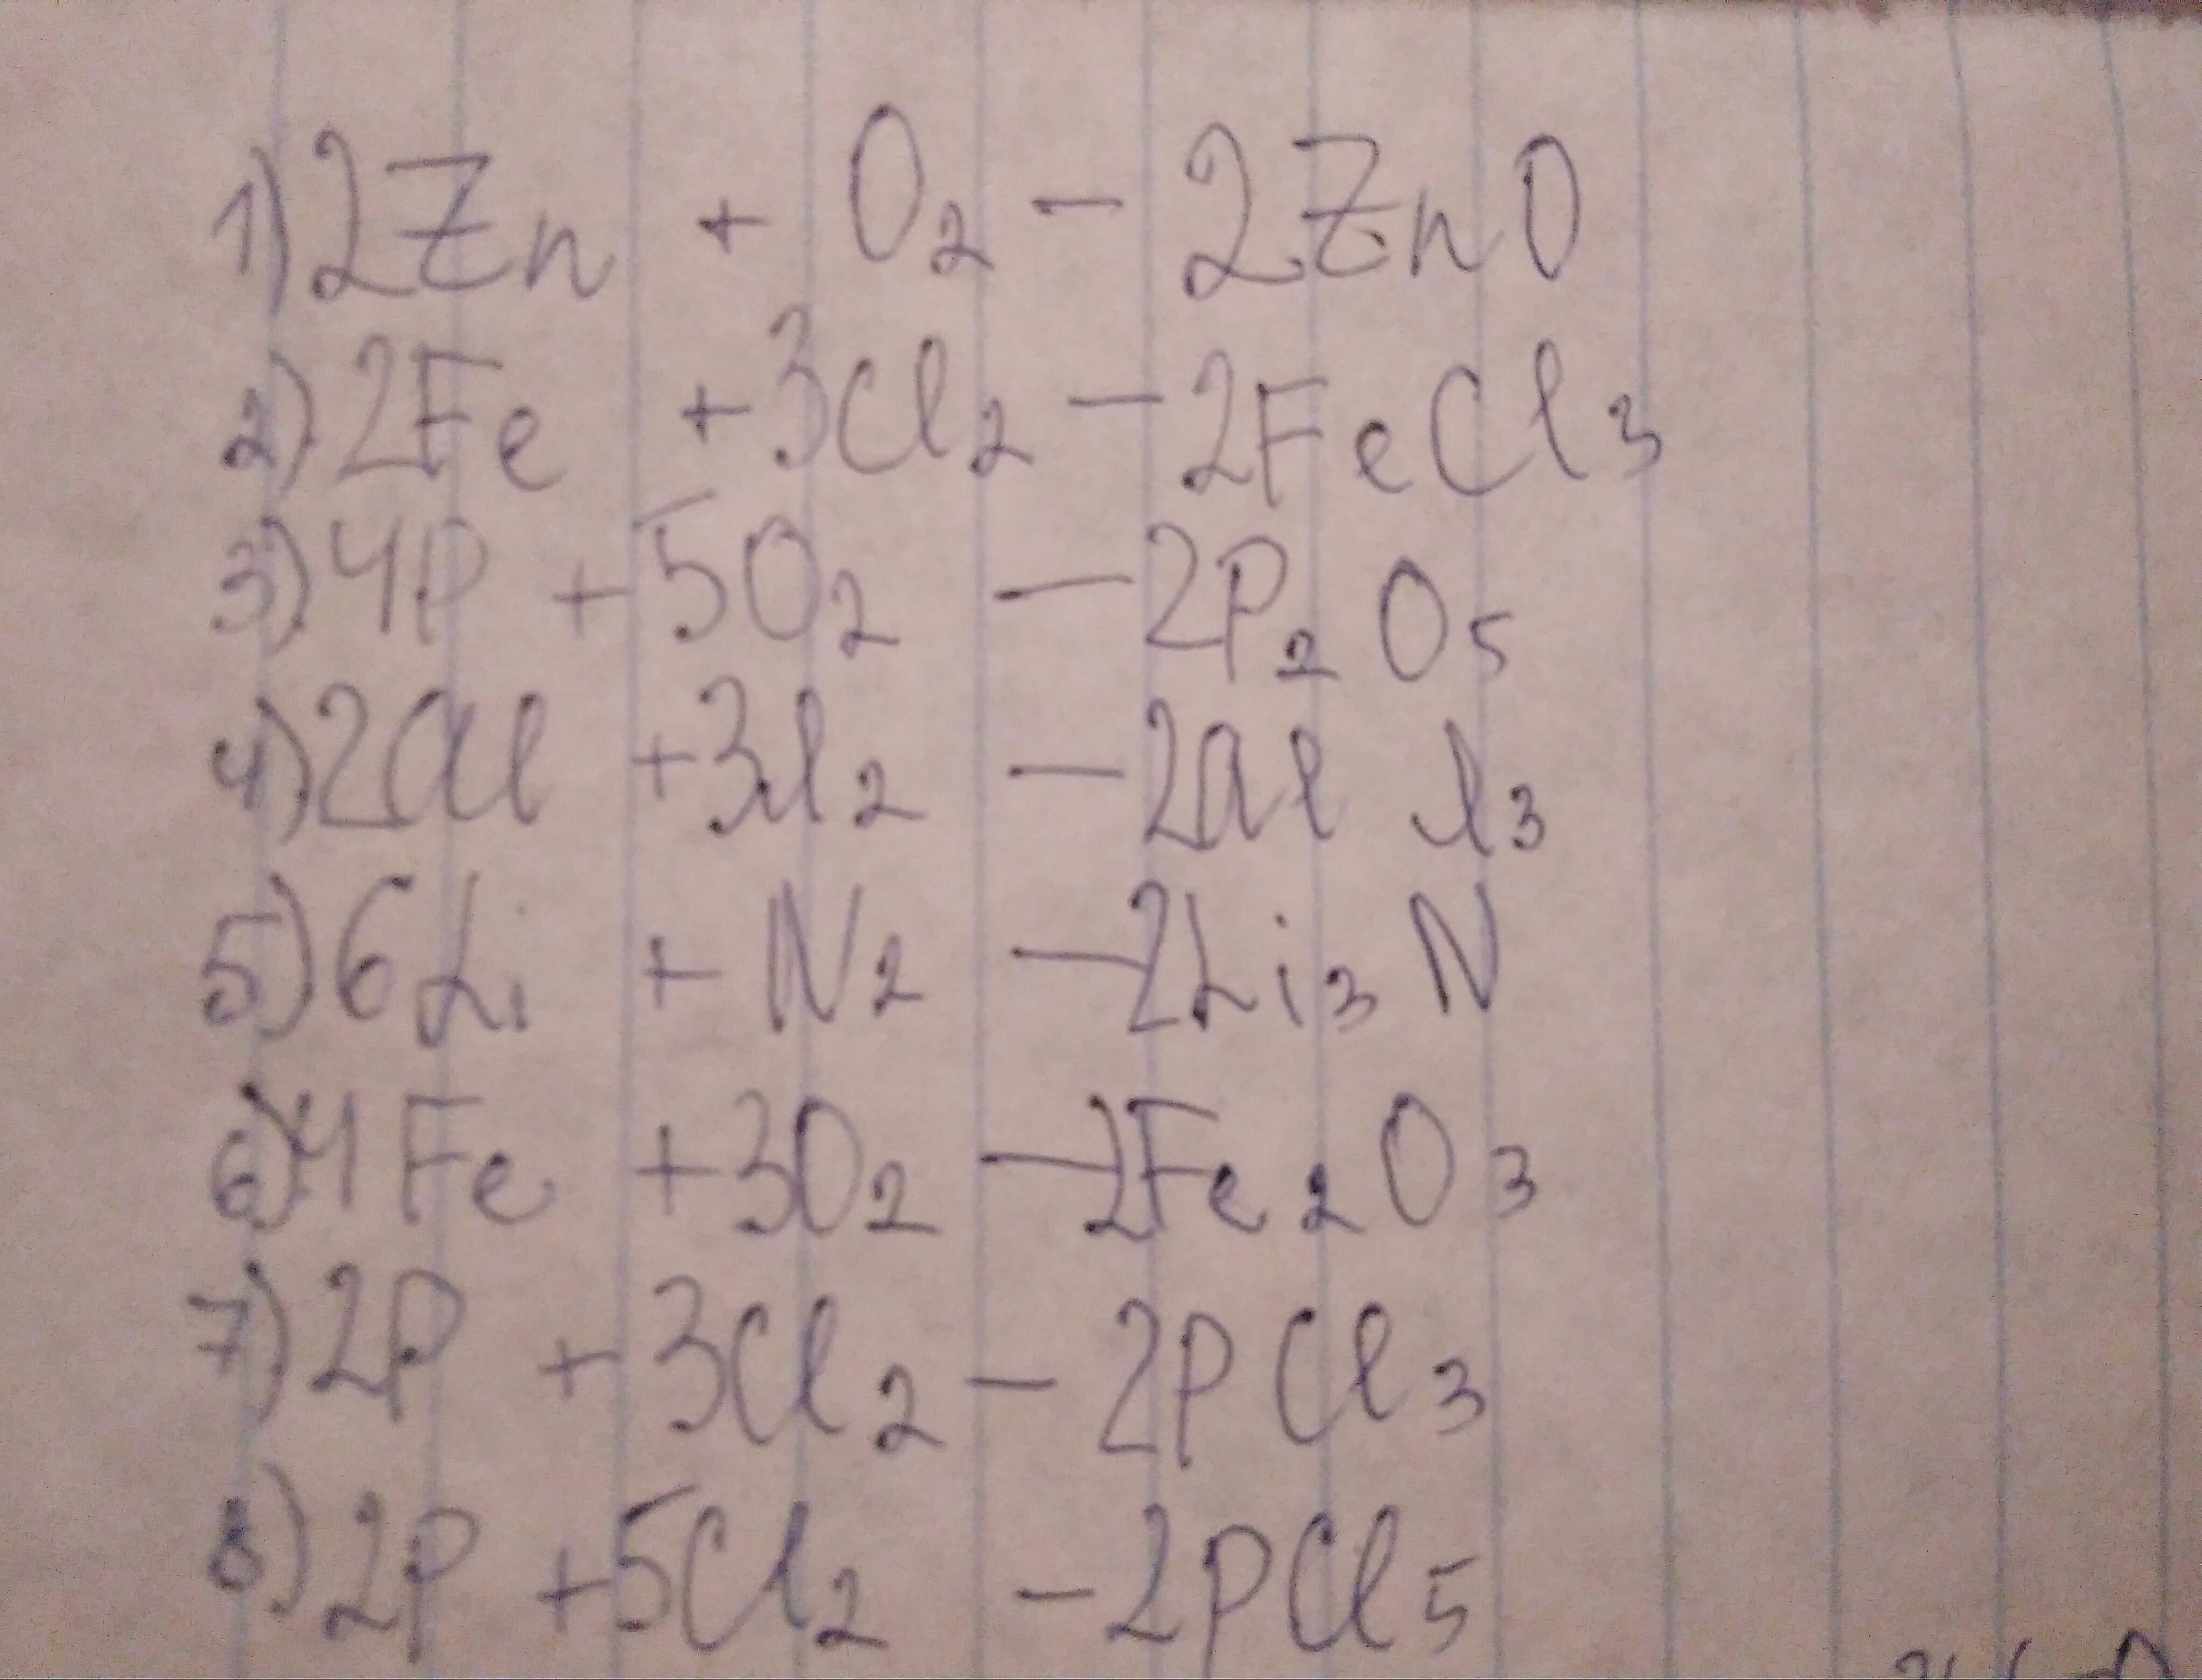 1) 2Zn + O₂ - 2ZnO
2) 2Fe + 3Cl₂ - 2FeCl₃
3) 4P + 5O₂ - 2P₂O₅
4) 2Al + 3I₂ - 2Al I₃
5) 6Li + N₂ - 2Li₃N
6) 4Fe + 3O₂ - 2Fe₂O₃
7) 2P + 3Cl₂ - 2PCl₃
8) 2P + 5Cl₂ - 2PCl₅